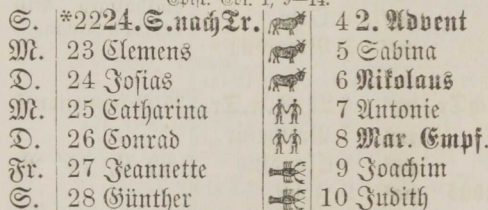 S. *22 24. S. nach Tr. 4 2. Advent
M. 23 Clemens 5 Sabina
D. 24 Josias 6 Nikolaus
M. 25 Catharina 7 Antonie
D. 26 Conrad 8 Mar. Empf.
Fr. 27 Jeannette 9 Joachim
S. 28 Günther 10 Judith